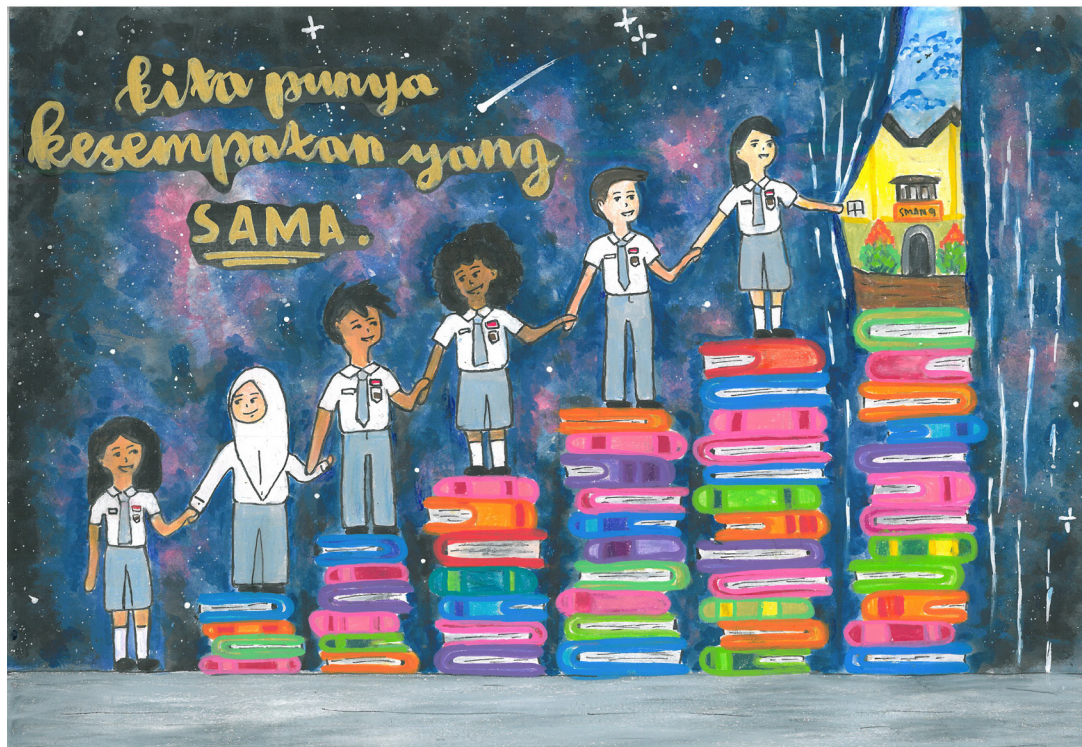 kita punya
kesempatan yang
SAMA.
SMAN 9